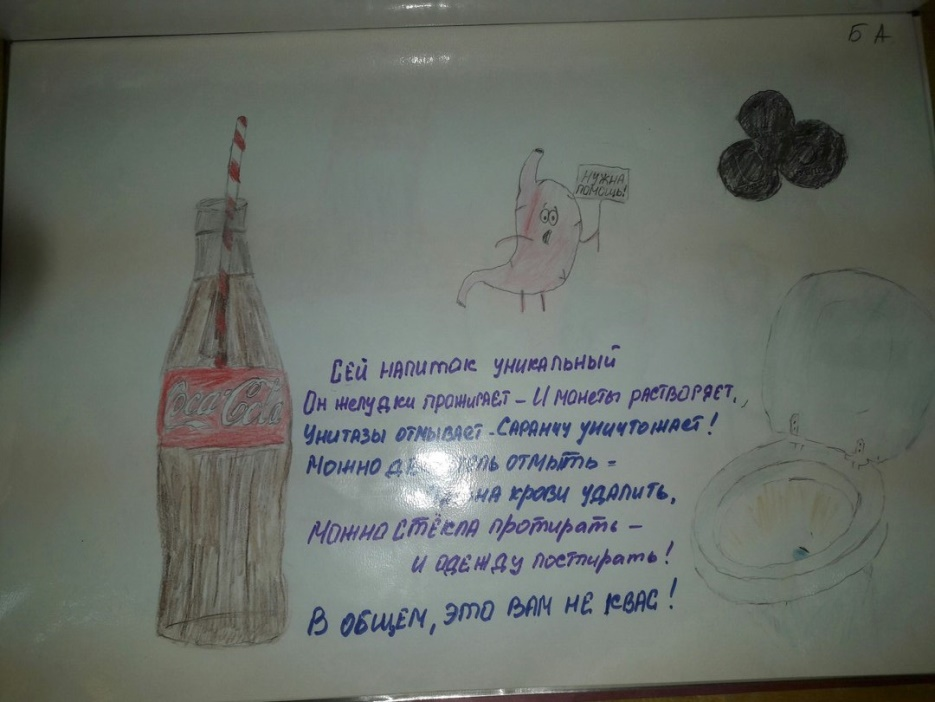 Б А
НУЖНА
ПОМОЩЬ!
Coca-Cola
Сей напиток уникальный
Он желудки прожигает – И монеты растворяет,
Унитазы отмывает - Саранчу уничтожает!
Можно отмыть -
крови удалить,
Можно стёкла протирать –
и одежду постирать!
В общем, это вам не квас!